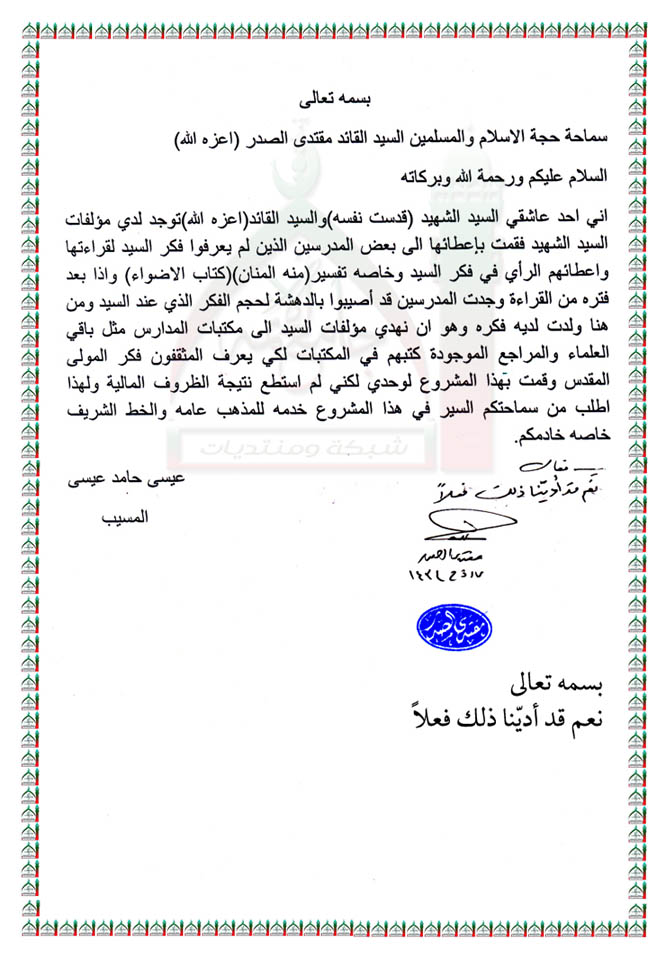 بسمه تعالى
سماحة حجة الاسلام والمسلمين السيد القائد مقتدى الصدر (اعزه الله)
السلام عليكم ورحمة الله وبركاته
اني احد عاشقي السيد الشهيد (قدست نفسه)والسيد القائد(اعزه الله)توجد لدي مؤلفات
السيد الشهيد فقمت بإعطائها الى بعض المدرسين الذين لم يعرفوا فكر السيد لقراءتها
واعطائهم الرأي في فكر السيد وخاصه تفسير(منه المنان)(كتاب الاضواء) واذا بعد
فتره من القراءة وجدت المدرسين قد أصيبوا بالدهشة لحجم الفكر الذي عند السيد ومن
هنا ولدت لديه فكره وهو ان نهدي مؤلفات السيد الى مكتبات المدارس مثل باقي
العلماء والمراجع الموجودة كتبهم في المكتبات لكي يعرف المثقفون فكر المولى
المقدس وقمت بهذا المشروع لوحدي لكني لم استطع نتيجة الظروف المالية ولهذا
اطلب من سماحتكم السير في هذا المشروع خدمه للمذهب عامه والخط الشريف
خاصه خادمكم.
عيسى حامد عيسى
المسيب
بسمه تعالى
نعم قد أديّنا ذلك فعلاً
مقتدى الصدر
مقتدى الصدر
بسمه تعالى
نعم قد أديّنا ذلك فعلاً
شبكة ومنتديات